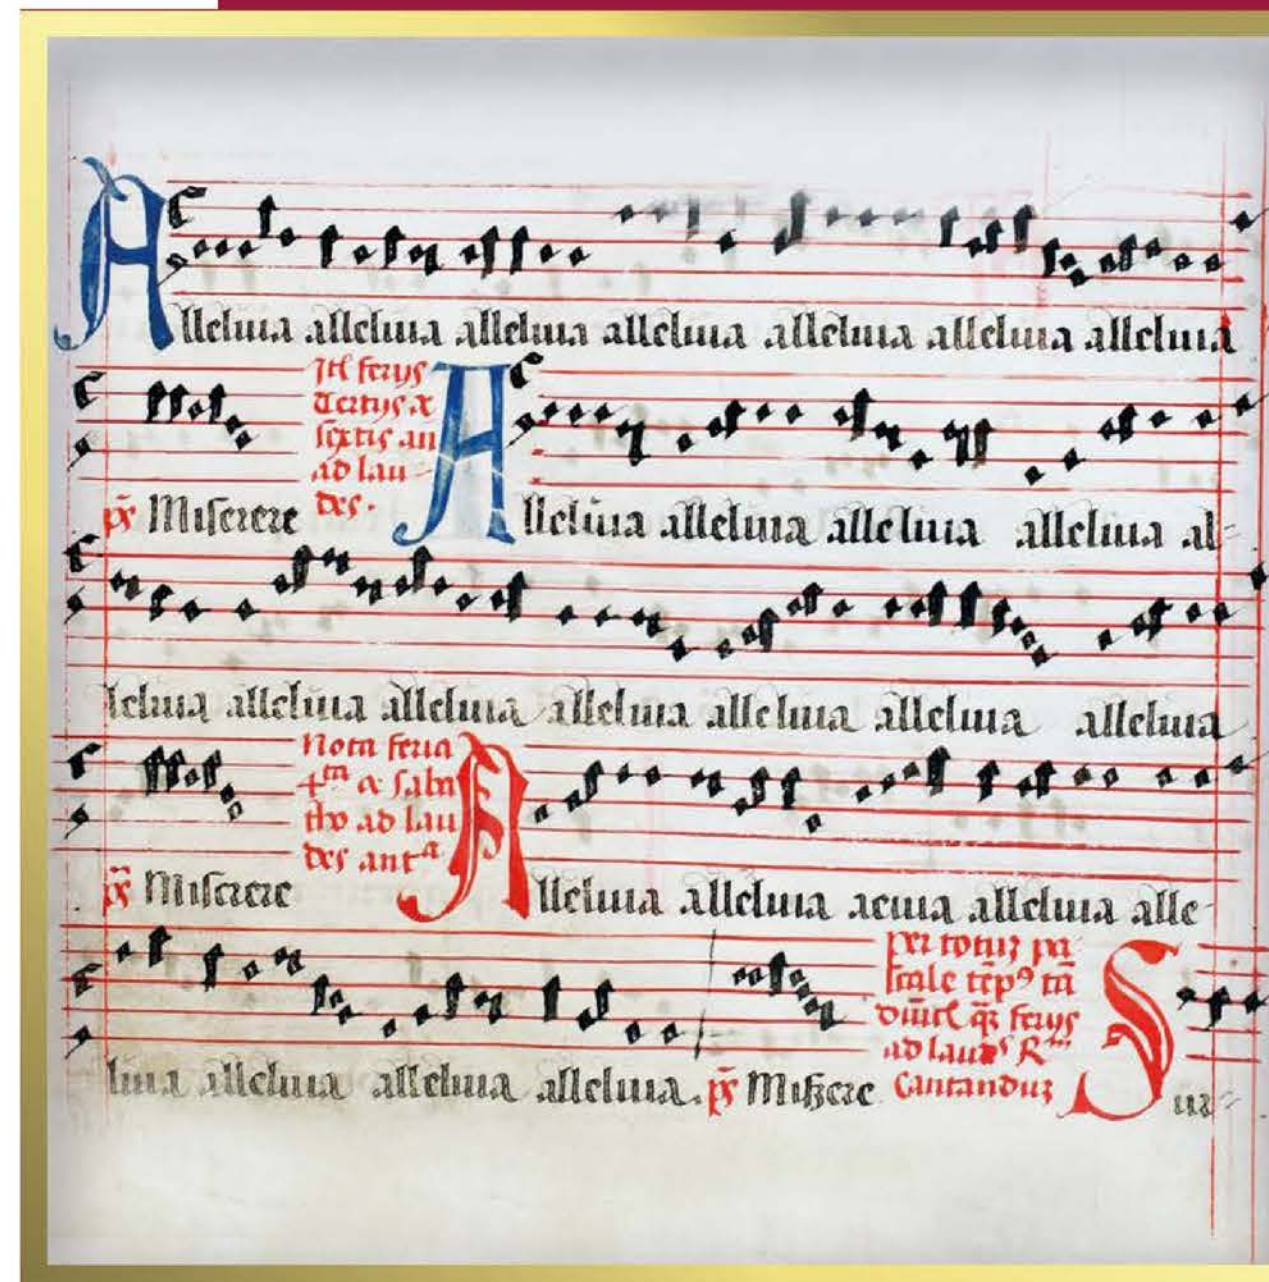 Alleluia alleluia alleluia alleluia alleluia alleluia alleluia
Itē ferijs
Tertijs ⁊
sextis an
ad lau-
des.
p̄s Miserere
Alleluia alleluia alleluia alleluia al-
leluia alleluia alleluia alleluia alleluia alleluia alleluia
Nota feria
4ta & saba
tho ad lau
des anta
p̄s Miserere
Alleluia alleluia aeuia alleluia alle-
luia alleluia alleluia alleluia. p̄s Miserere
per totuz pa
scale tēp9 tā
ferijs
ad laudes
Cantanduz
Sur-